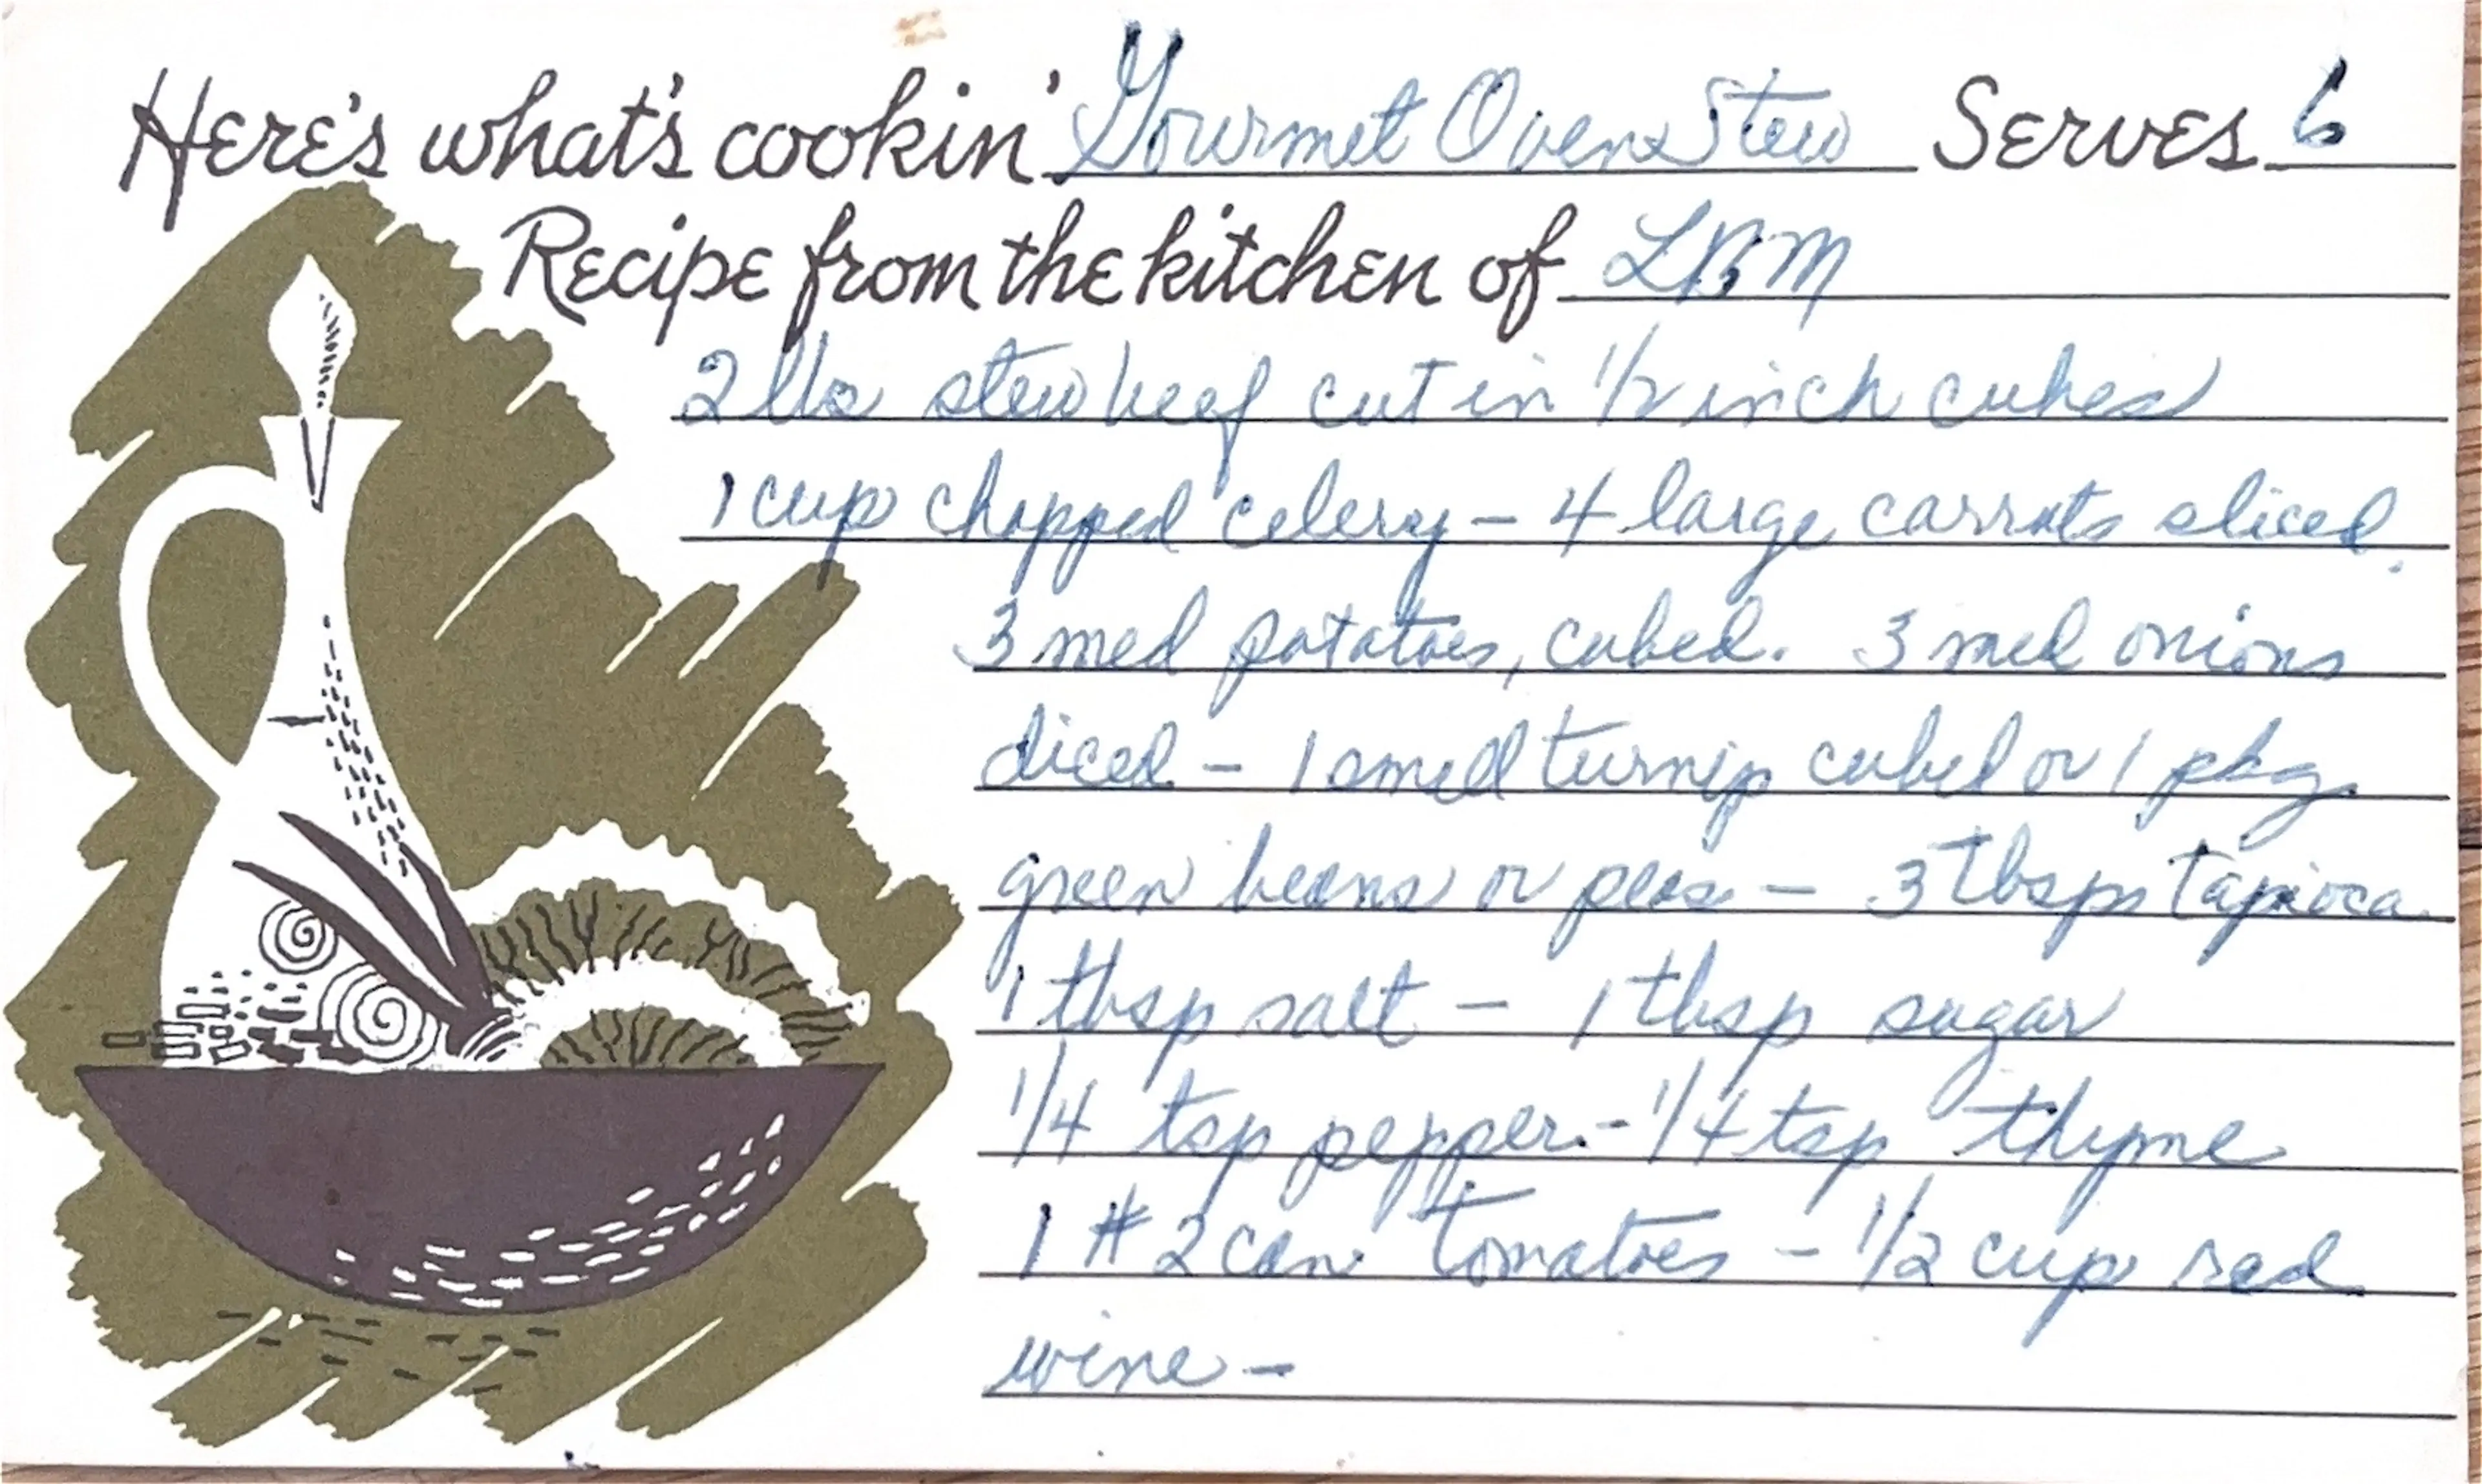 Here's what's cookin' Gourmet Oven Stew Serves 6
Recipe from the kitchen of LBM
2 lbs stew beef cut in 1/2 inch cubes
1 cup chopped celery - 4 large carrots sliced.
3 med potatoes, cubed. 3 med onions
diced - 1 small turnip cubed or 1 pkg.
green beans or peas - 3 Tbsps Tapioca
1 tbsp salt - 1 tbsp sugar
1/4 tsp pepper. - 1/4 tsp thyme
1 # 2 can tomatoes - 1/2 cup red
wine -